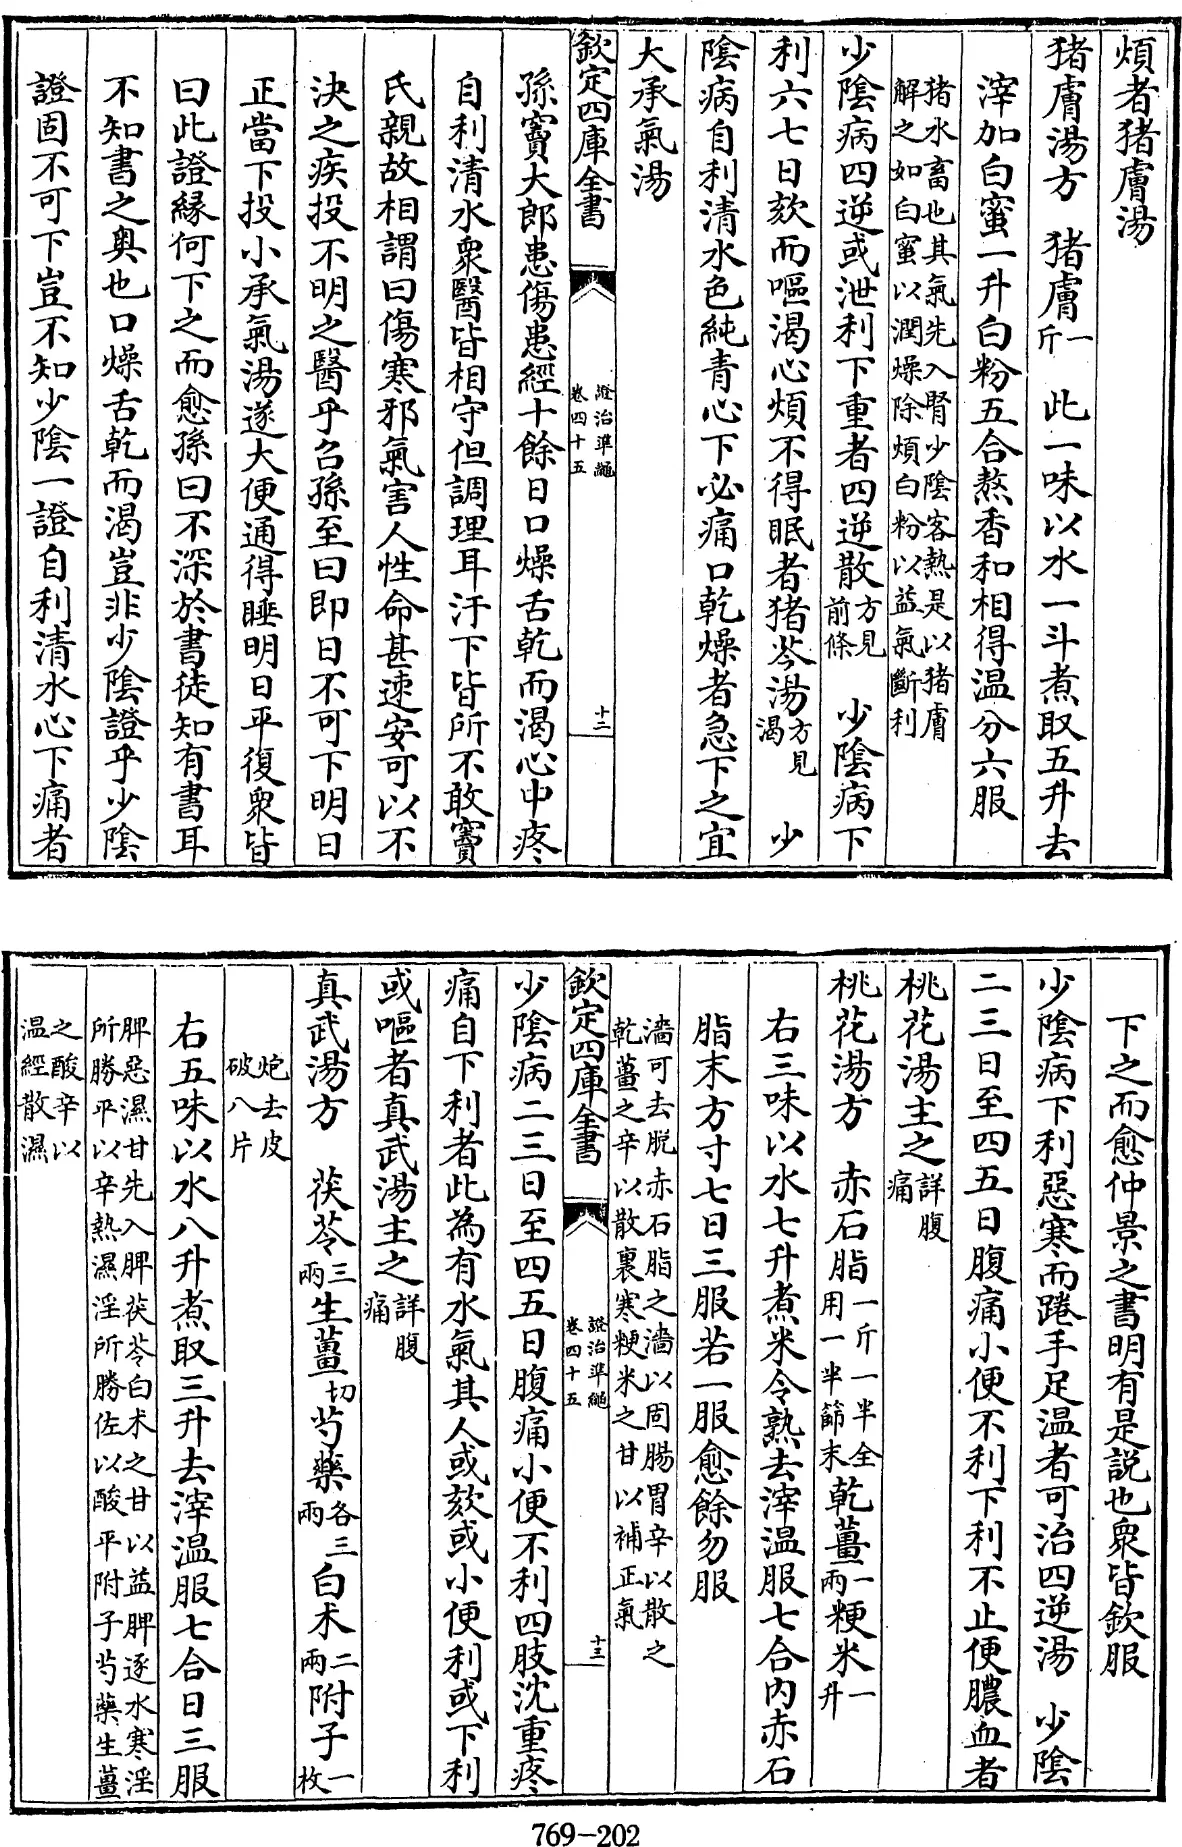 煩者猪膚湯
猪膚湯方　猪膚一斤　此一味以水一斗煮取五升去
滓加白蜜一升白粉五合熬香和相得温分六服
猪水畜也其氣先入腎少陰客熱是以猪膚
解之如白蜜以潤燥除煩白粉以益氣斷利
少陰病四逆或泄利下重者四逆散方見前條　少陰病下
利六七日欬而嘔渇心煩不得眠者猪苓湯方見渇　少
陰病自利清水色純青心下必痛口乾燥者急下之宜
大承氣湯
欽定四庫全書
證治準繩
卷四十五
十二
孫竇大郎患傷患經十餘日口燥舌乾而渴心中疼
自利清水衆醫皆相守但調理耳汗下皆所不敢竇
氏親故相謂曰傷寒邪氣害人性命甚速安可以不
決之疾投不明之醫乎召孫至曰即日不可下明日
正當下投小承氣湯遂大便通得睡明日平復衆皆
曰此證縁何下之而愈孫曰不深於書徒知有書耳
不知書之奥也口燥舌乾而渴豈非少陰證乎少陰
證固不可下豈不知少陰一證自利清水心下痛者
下之而愈仲景之書明有是説也衆皆欽服
少陰病下利惡寒而踡手足温者可治四逆湯　少陰
二三日至四五日腹痛小便不利下利不止便膿血者
桃花湯主之詳腹痛
桃花湯方　赤石脂一斤一半全用一半篩末乾薑一兩粳米一升
右三味以水七升煮米令熟去滓温服七合内赤石
脂末方寸七日三服若一服愈餘勿服
濇可去脱赤石脂之濇以固腸胃辛以散之
乾薑之辛以散裏寒粳米之甘以補正氣
欽定四庫全書
證治準繩
卷四十五
十三
少陰病二三日至四五日腹痛小便不利四肢沈重疼
痛自下利者此為有水氣其人或欬或小便利或下利
或嘔者真武湯主之詳腹痛
真武湯方　茯苓三兩生薑切芍藥各三兩白朮二兩附子一枚
炮去皮
破八片
右五味以水八升煮取三升去滓温服七合日三服
脾惡濕甘先入脾茯苓白朮之甘以益脾逐水寒淫
所勝平以辛熱濕淫所勝佐以酸平附子芍藥生薑
之酸辛以
温經散濕
769-202